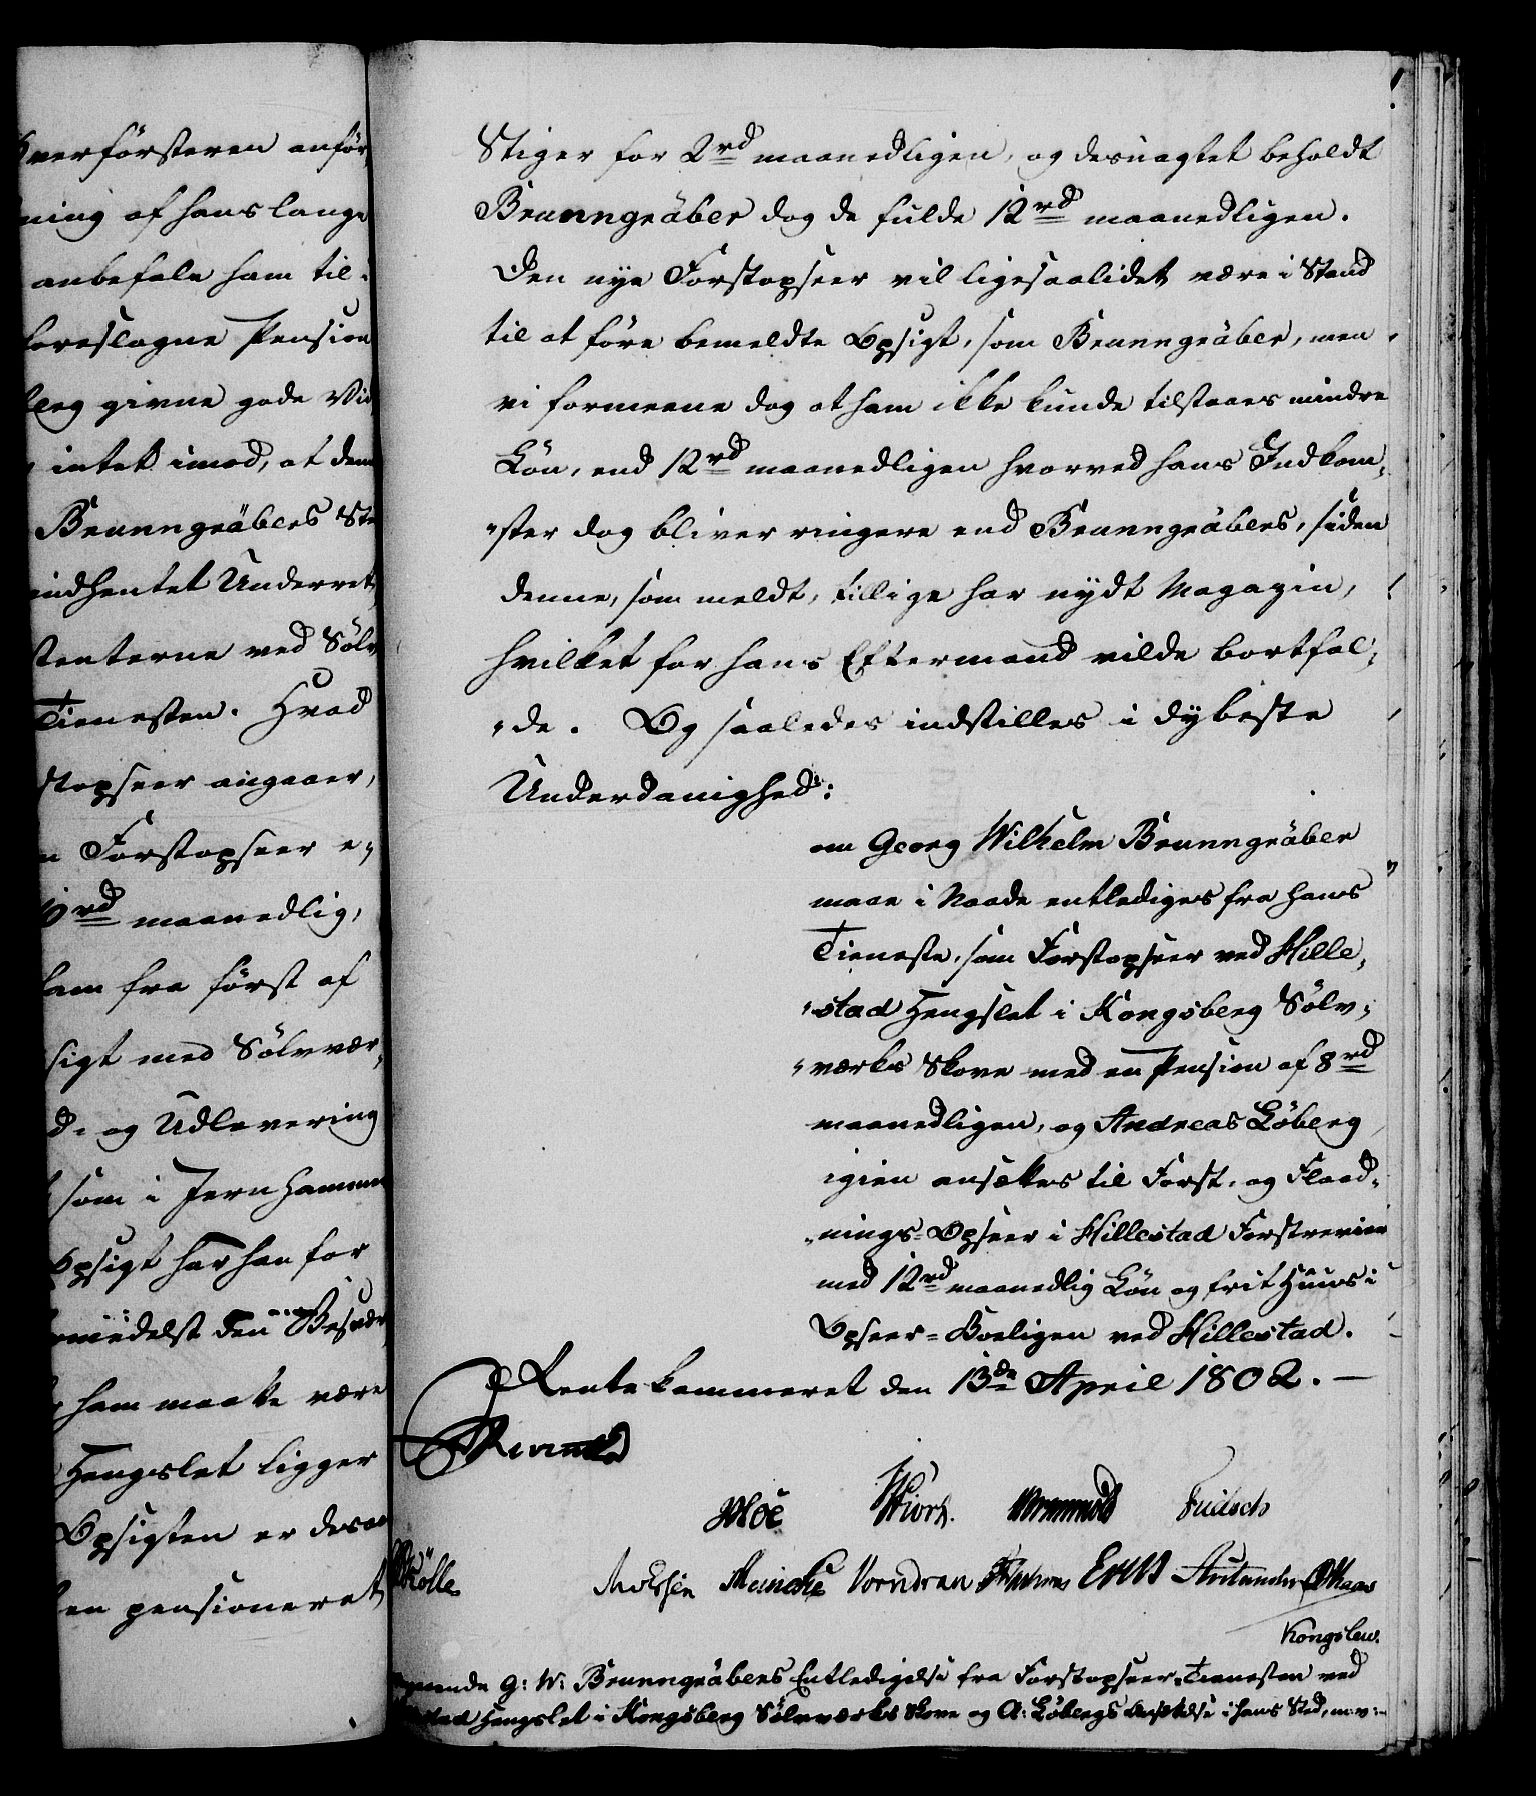 Overførsteren anfør
ning af hans lange
anbefale ham til
foreslagne Pension
berg givne gode Vid
intet imod, at den
Brunngräbers Ste
indhentet Underret
tenterne ved Sølv
Tienesten. Hvad
stopseer angaaer,
n Forstopseer e,
10 rd maanedlig,
ham fra først af
sigt med Sølvvær,
d- og Udlevering
som i Jern Hammer
Opsigt har han for
midelst den Besvær
ham maatte være
Hengslet ligger
Opsigten er desva
en pensioneret
Stiger for 2 rd maanedligen, og desuagtet beholdt
Brunngräber dog de fulde 12 rd maanedligen.
Den nye Forstopseer vil ligesaalidet være i Stand
til at føre bemeldte Opsigt, som Brunngräber, men
vi formeene dog at ham ikke kunde tilstaaes mindre
Løn, end 12 rd maanedligen hvorved hans Indkom,
"ster dog bliver ringere end Brunngräbers, siden
denne, som meldt, tillige har nydt Magazin,
hvilket for hans Eftermand vilde bortfal,
"de. Og saaledes indstilles i dybeste
Underdanighed:
om Georg Wilhelm Brunngräber
maae i Naade entlediges fra hans
Tieneste, som Forstopseer ved Hille,
"stad Hengslet i Kongsberg Sølv,
"værks Skove med en Pension af 8 rd
maanedligen, og Andreas Löberg
igien ansættes til Forst- og Flaad,
"nings-Opseer i Hillestad Forstrevier
med 12 rd maanedlig Løn og frit Huus i
Opseer-Boeligen ved Hillestad.
Rentekammeret den 13de April 1802. —
Reventlow
Moe Wiorh. Fridsch
Mölle Meincke Vorndran Kongslew.
G: W: Brunngräbers Entledigelse fra Forstopseer-Tienesten ved
Hengslet i Kongsberg Sølvværks Skove og A: Löbergs Ansættelse i hans Sted, m: v: